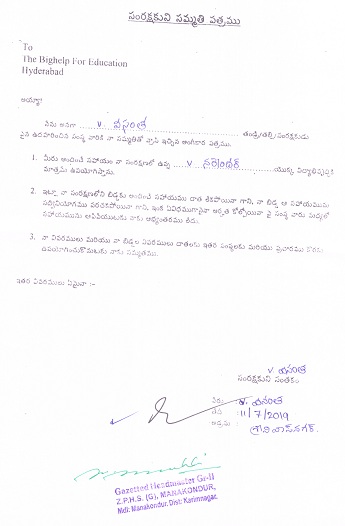 సంరక్షకుని సమ్మతి పత్రము
To
The Bighelp For Education
Hyderabad
అయ్యా!
నేను అనగా V. వసంత తండ్రి/తల్లి/సంరక్షకుడు
పైన ఉదహరించిన సంస్థ వారికి నా సమ్మతితో వ్రాసి ఇచ్చిన అంగీకార పత్రము.
1. మీరు అందించే సహాయం నా సంరక్షణలో ఉన్న V. నరేందర్ యొక్క విద్యాభివృద్ధికి
మాత్రమే ఉపయోగిస్తాను.
2. ఇట్లు నా సంరక్షణలోని బిడ్డకు అందించే సహాయము దాత లేకపోయినా గాని, నా బిడ్డ ఆ సహాయమును
సద్వినియోగము పరచకపోయినా గాని, ఇంక ఏవిధముగానైనా అర్హత కోల్పోయినా పై సంస్థ వారు మధ్యలో
సహాయమును ఆపివేయుటకు నాకు అభ్యంతరము లేదు.
3. నా వివరములు మరియు నా బిడ్డల వివరములు దాతలకు ఇతర సంస్థలకు మరియు ప్రచారము కొరకు
ఉపయోగించుకొనుటకు నాకు సమ్మతము.
ఇతర వివరములు ఏమైనా :-
V. వసంత
సంరక్షకుని సంతకం
పేరు: V. వసంత
తేది: 11/7/2019
అడ్రసు: శ్రీనివాస్‌నగర్.
Gazetted Headmaster Gr-II
Z.P.H.S. (G), MANAKONDUR,
Mdl: Manakondur, Dist: Karimnagar.